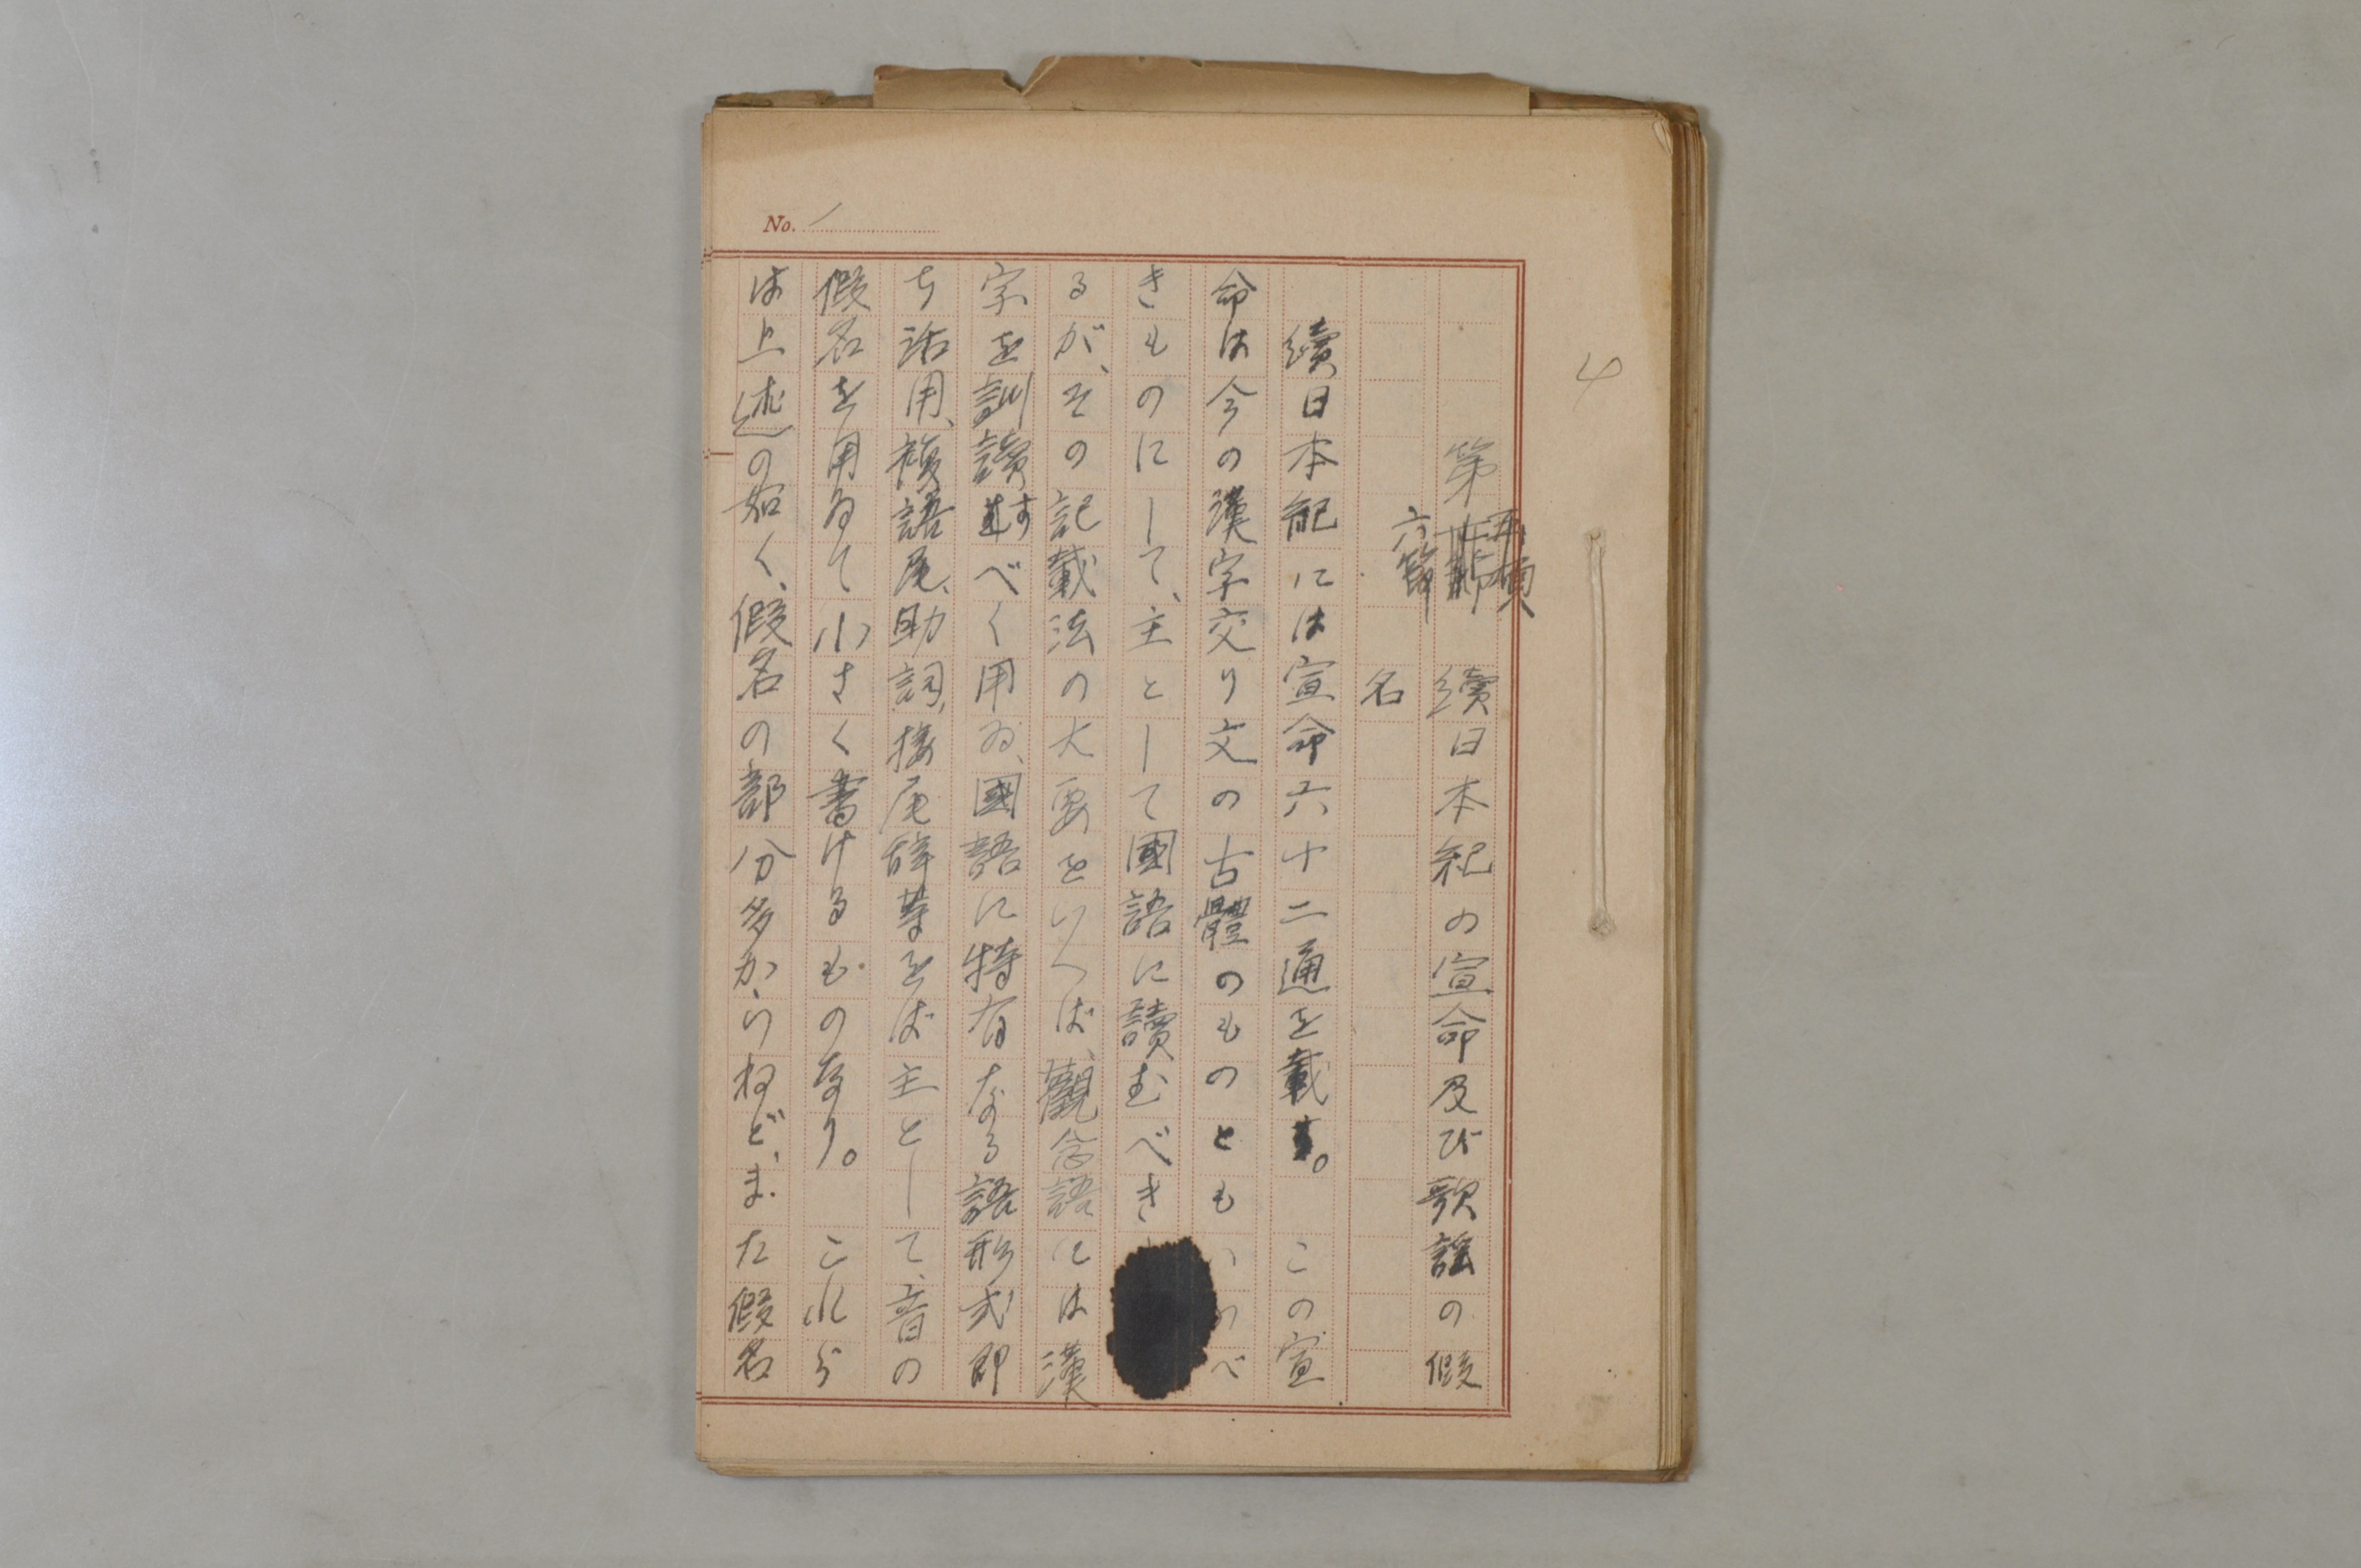 No. 1
4
第六節 續日本紀の宣命及び歌謡の假
名
續日本紀には宣命六十二通を載す。 この宣
命は今の漢字交り文の古體のものともいふべ
きものにして、主として國語に讀むべき
るが、その記載法の大要をいへば、觀念語には漢
字を訓讀すべく用ゐ、國語に特有なる語形式即
ち活用、複語尾、助詞、接尾辭等をば主として、音の
假名を用ゐて小さく書けるものなり。 これら
は上述の如く、假名の部分多からねど、また假名